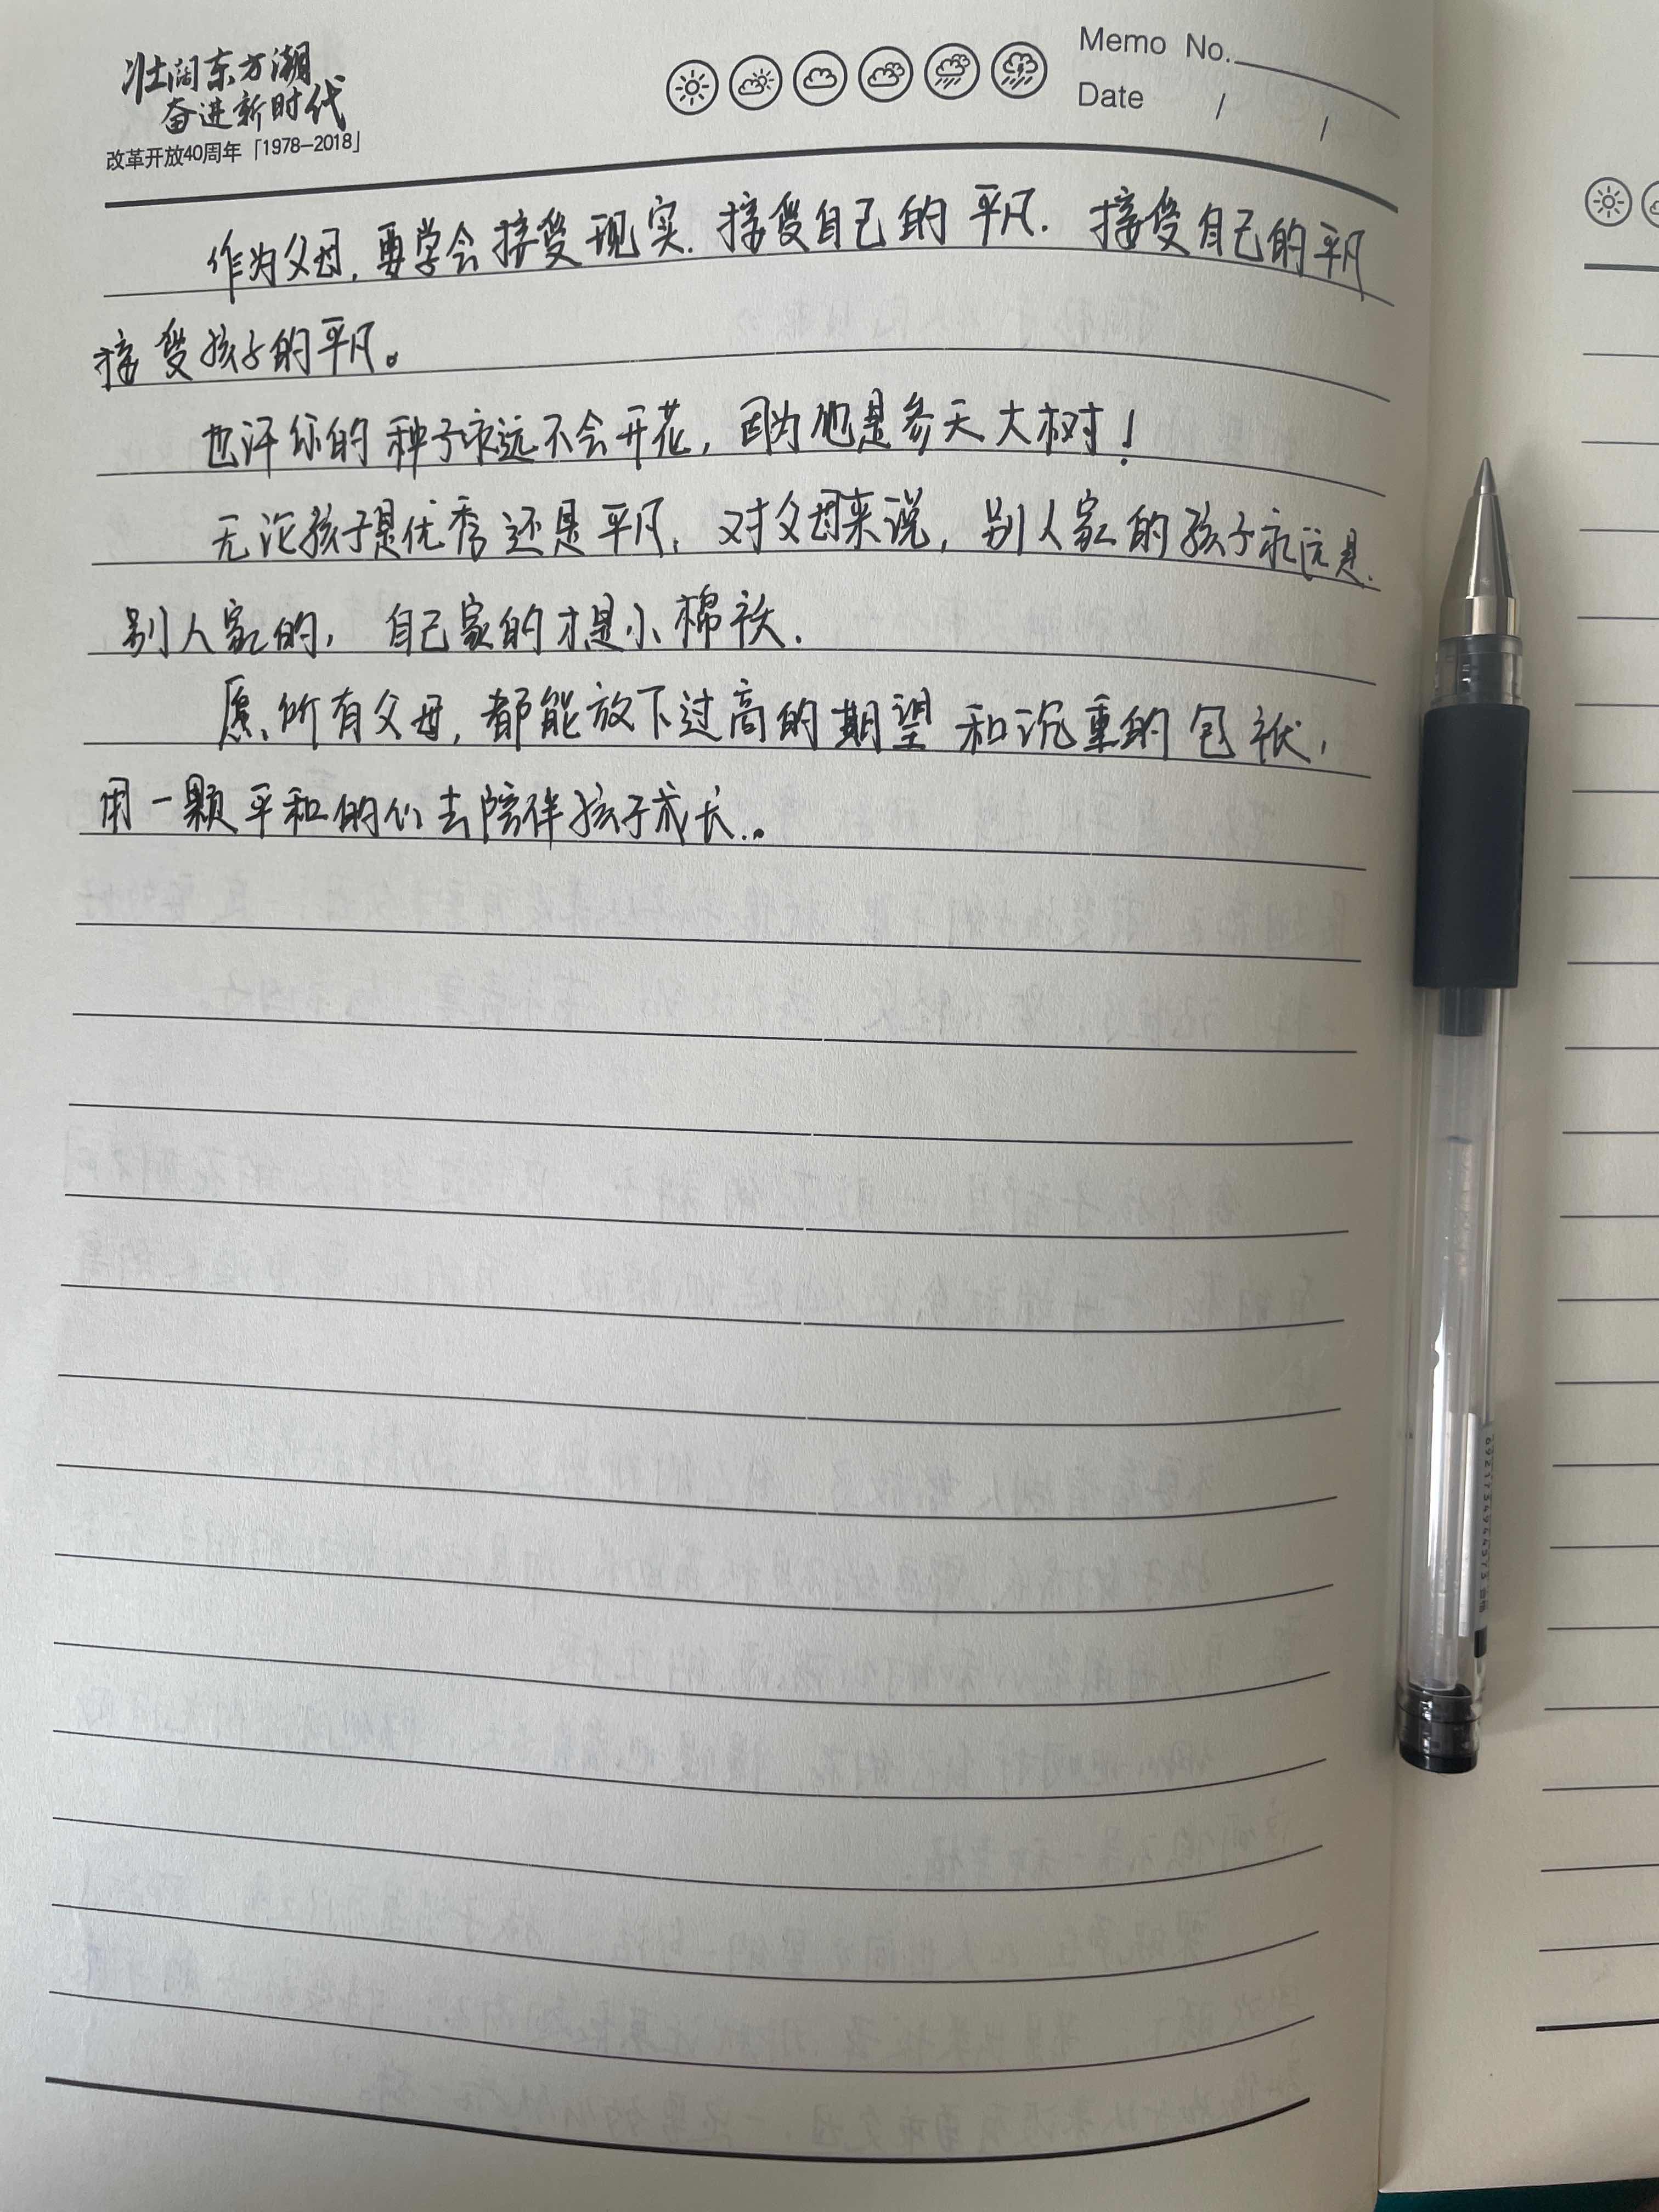 壮阔东方潮
奋进新时代
改革开放40周年「1978-2018」
Memo No.
Date / /
作为父母,要学会接受现实.接受自己的平凡.接受自己的平凡
接受孩子的平凡。
也许你的种子永远不会开花,因为他是参天大树!
无论孩子是优秀还是平凡,对父母来说,别人家的孩子永远是.
别人家的,自己家的才是小棉袄.
愿所有父母,都能放下过高的期望和沉重的包袱,
用一颗平和的心去陪伴孩子成长..。